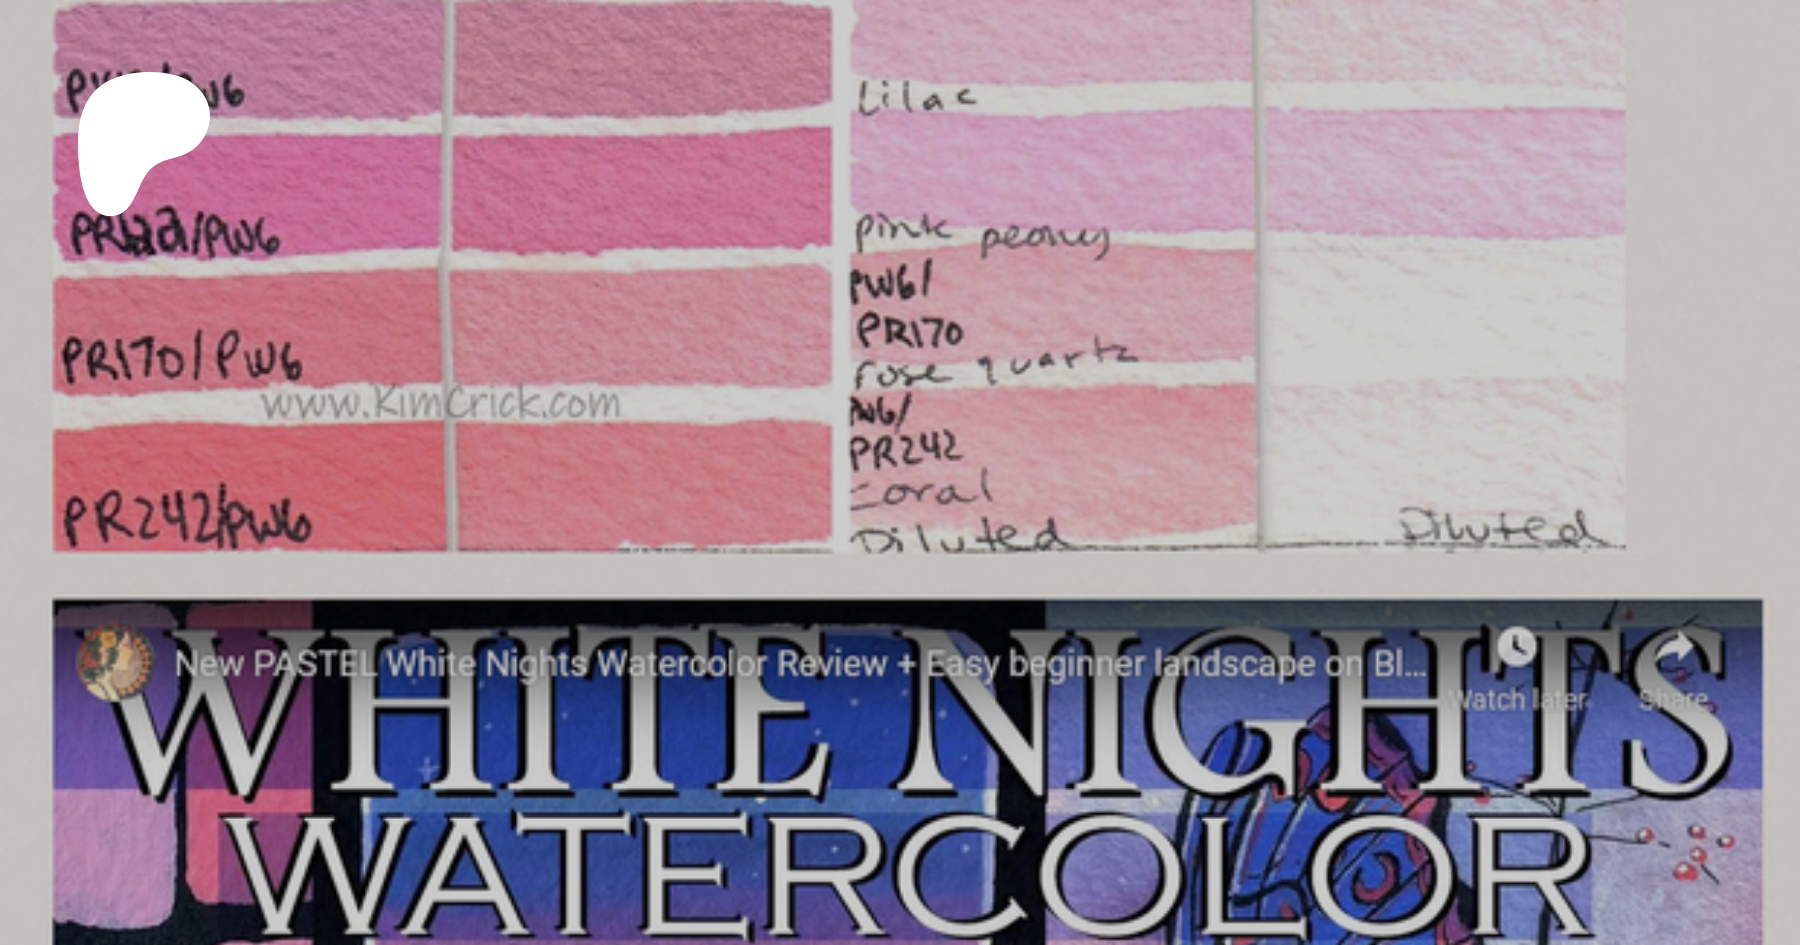 Lilac
PR122/PW6
pink peony
PW6/
PR170
PR170/PW6
rose quartz
www.KimCrick.com
PR242
coral
PR242/PW6
Diluted
Diluted
New PASTEL White Nights Watercolor Review + Easy beginner landscape on Bl...
Watch later
Share
WHITE NIGHTS
WATERCOLOR